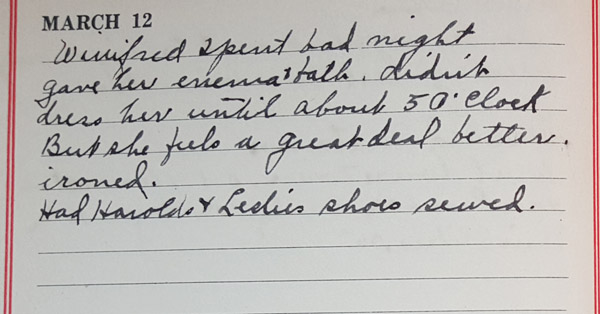 MARCH 12
Winifred spent bad night
gave her enema & bath. didn't
dress her until about 5 O'Clock
But she feels a great deal better.
ironed.
Had Harolds & Leslies shoes sewed.